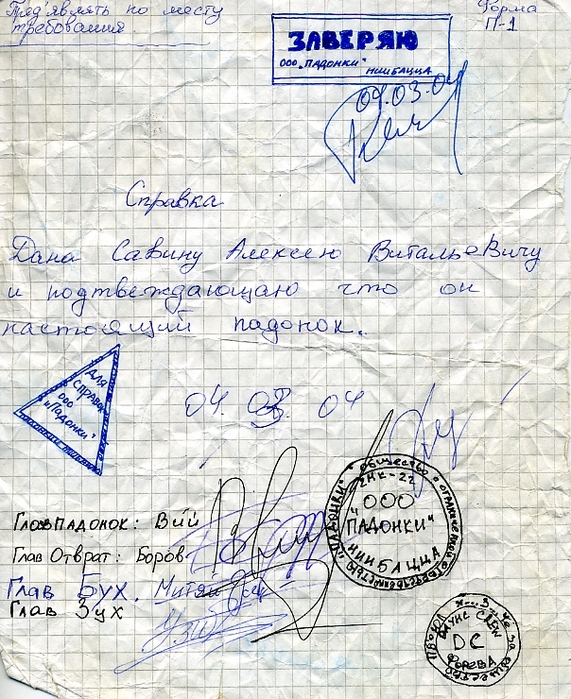 Пред'являть по месту
требования
Форма
П-1
ЗАВЕРЯЮ
ООО „ПАДОНКИ"
НИИБАЦЦА
04.03.04
Справка
Дана Савину Алексею Витальевичу
и подтвеждающаю что он
настоящий падонок.
ДЛЯ
СПРАВОК
ООО
"ПАДОНКИ"
04. 03. 04
ОБЩЕСТВО
ЭНК-22
ООО
"ПАДОНКИ"
НИИБАЦЦА
ГлавПАДОНОК: Вий
Глав Отврат: Боров
Глав Бух. Митяй
Глав Зух
CREW
DC
ФОРЕВА